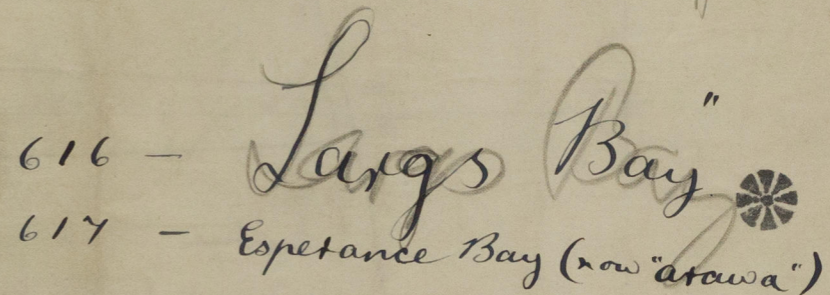 616 – Largs Bay"
617 – Esperance Bay (now "arawa")